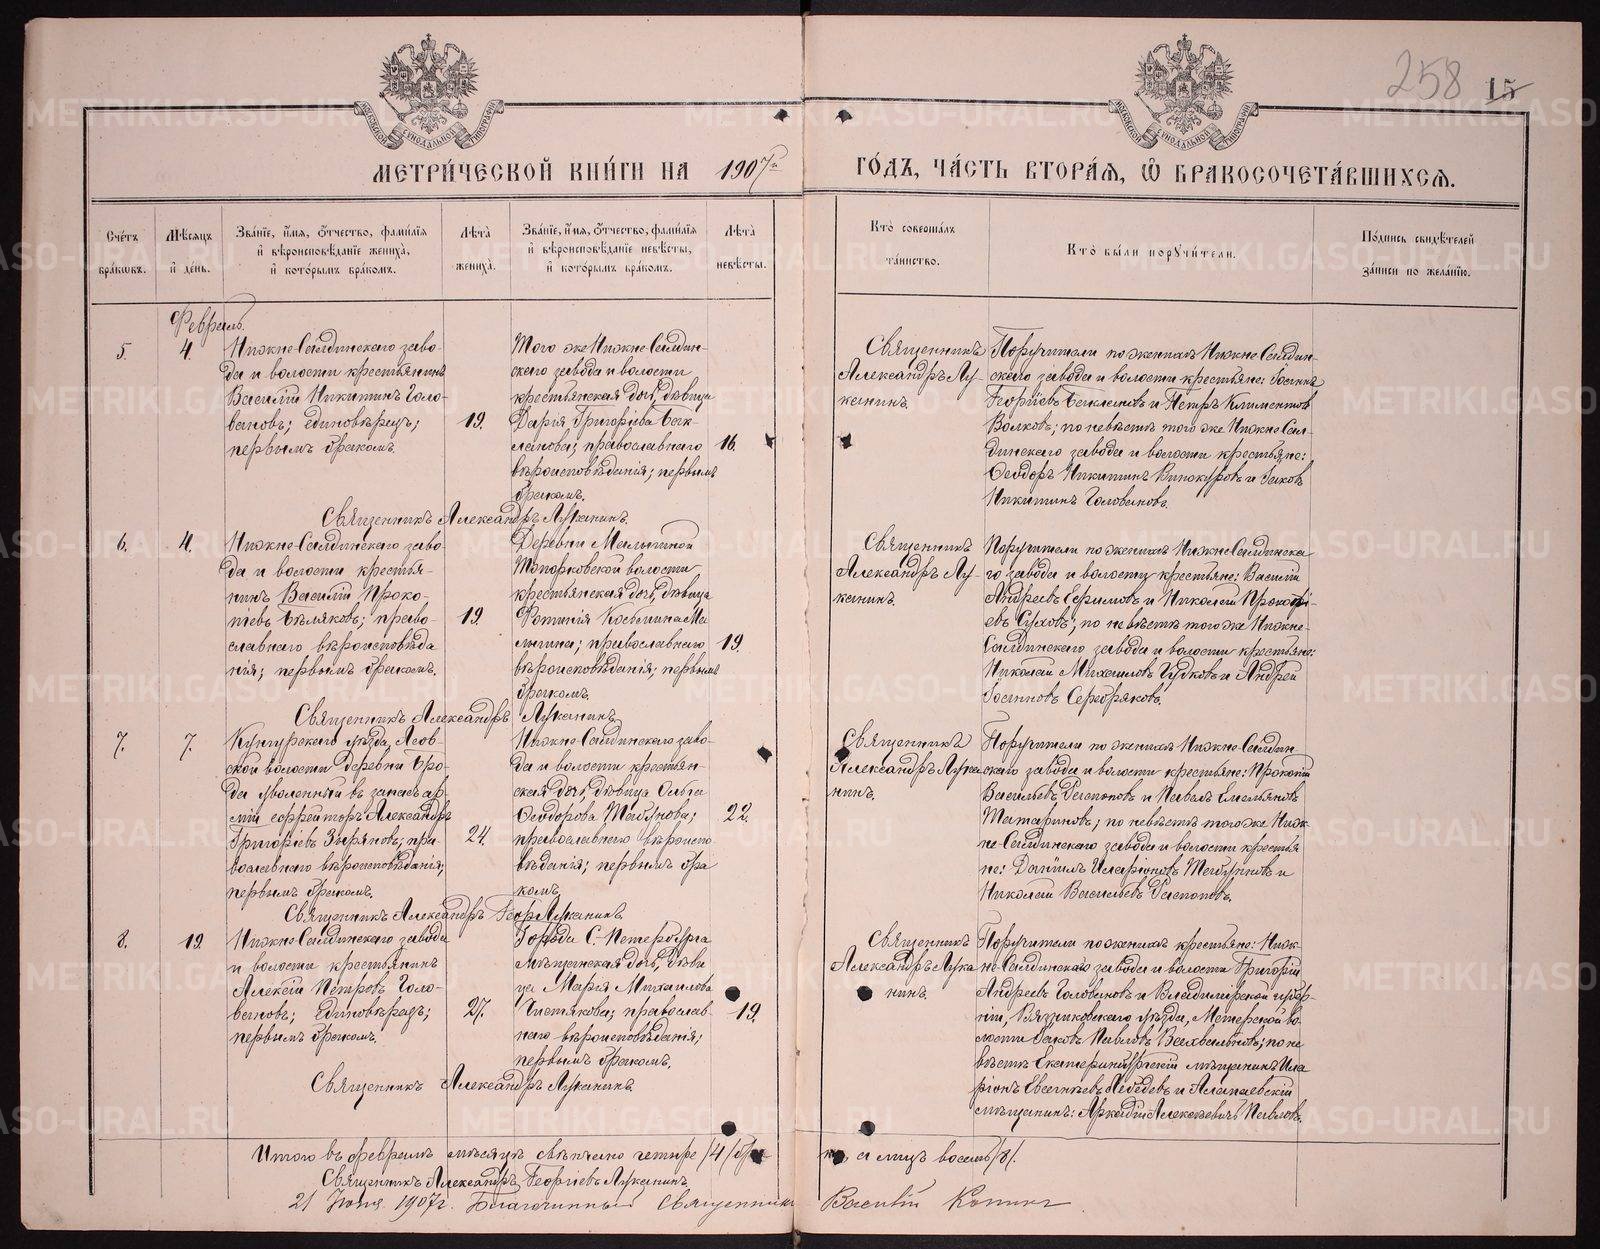 258 15
МЕТРИ́ЧЕСКОЙ КНИ́ГИ НА 1907й ГО́ДЪ, ЧА́СТЬ ВТОРА́Я, Ѽ БРАКОСОЧЕТА́ВШИХСЯ.
Сче́тъ бра́кѡвъ.
Мѣ́сяцъ и де́нь.
Зва́нїе, и́мя, ѻ́тчество, фами́лїя и вѣроисповѣ́данїе жениха̀, и кото́рымъ бра́комъ.
Лѣ́та жениха̀.
Зва́нїе, и́мя, ѻ́тчество, фами́лїя и вѣроисповѣ́данїе невѣ́сты, и кото́рымъ бра́комъ.
Лѣ́та невѣ́сты.
Кто̀ соверша́лъ та́инство.
Кто̀ бы́ли поручи́тели.
По́дпись свидѣ́телей за́писи по жела́нїю.
Февраль.
5.
4.
Нижне-Салдинскаго заво-
да и волости крестьянинъ
Василій Никитинъ Голо-
вановъ; единовѣрецъ;
первымъ бракомъ.
19.
Того же Нижне-Салдин-
скаго завода и волости
крестьянская дочь, дѣвица
Дарія Григоріева Бак-
ланова; православнаго
вѣроисповѣданія; первымъ
бракомъ.
16.
Священникъ
Александръ Лу-
канинъ.
Поручители по женихѣ Нижне-Салдин-
скаго завода и волости крестьяне: Іоаннъ
Георгіевъ Баклановъ и Петръ Климентовъ
Волковъ; по невѣстѣ того же Нижне-Сал-
динскаго завода и волости крестьяне:
Ѳеодоръ Никитинъ Винокуровъ и Іаковъ
Никитинъ Головановъ.
Священникъ Александръ Луканинъ.
6.
4.
Нижне-Салдинскаго заво-
да и волости крестья-
нинъ Василій Проко-
піевъ Бѣляковъ; право-
славнаго вѣроисповѣда
нія; первымъ бракомъ.
19.
Деревни Малыгиной
Топорковской волости
крестьянская дочь, дѣвица
Фотинія Косьмина Ма
лыгина; православнаго
вѣроисповѣданія; первымъ
бракомъ.
19.
Священникъ
Александръ Лу-
канинъ.
Поручители по женихѣ Нижне-Салдинска
го завода и волости крестьяне: Василій
Андреевъ и Николай Прокопі-
евъ Суховъ; по невѣстѣ того же Нижне-
Салдинскаго завода и волости крестьяне:
Николай Михаиловъ Гудковъ и Андрей
Іоанновъ Серебряковъ.
Священникъ Александръ Луканинъ.
7.
7.
Кунгурскаго уѣзда, Асов-
ской волости деревни Бро-
да уволенный въ запасъ ар-
міи ефрейторъ Александръ
Григоріевъ Зыряновъ; пра
вославнаго вѣроисповѣданія;
первымъ бракомъ.
24.
Нижне-Салдинскаго заво-
да и волости крестьян-
ская дочь, дѣвица Ольга
Ѳеодорова
православнаго вѣроиспо
вѣданія; первымъ бра
комъ.
22.
Священникъ
Александръ Лука
нинъ.
Поручители по женихѣ Нижне-Салдин
скаго завода и волости крестьяне: Прокопій
Васильевъ Распоповъ и Павелъ Емельяновъ
Татариновъ; по невѣстѣ того же Ниж-
не-Салдинскаго завода и волости крестья
не: Даніилъ Иларіоновъ и
Николай Васильевъ Распоповъ.
Священникъ Александръ Геор Луканинъ.
8.
19.
Нижне-Салдинскаго завода
и волости крестьянинъ
Алексій Петровъ Голо-
вановъ; единовѣрецъ;
первымъ бракомъ.
27.
Города С.-Петербурга
мѣщанская дочь, дѣви
ца Марія Михаилова
Чистякова; православ-
наго вѣроисповѣданія;
первымъ бракомъ.
19.
Священникъ
Александръ Лука
нинъ.
Поручители по женихѣ крестьяне: Ниж-
не-Салдинскаго завода и волости Григорій
Андреевъ Головановъ и Владимірской губер-
ніи, Вязниковскаго уѣзда, Мстерской во-
лости Іаковъ Павловъ; по не
вѣстѣ Екатеринбургскій мѣщанинъ Ила
ріонъ Евсигнѣевъ Лебедевъ и Алапаевскій
мѣщанинъ: Аркадій Алексѣевичъ Павловъ.
Священникъ Александръ Луканинъ.
Итого въ февралѣ мѣсяцѣ свѣнчано четыре /4/ бра ка, а лицъ восемь /8/.
Священникъ Александръ Георгіевъ Луканинъ
21 Іюня 1907г. Благочинный Священникъ Василій
METRIKI.GASO-URAL.RU